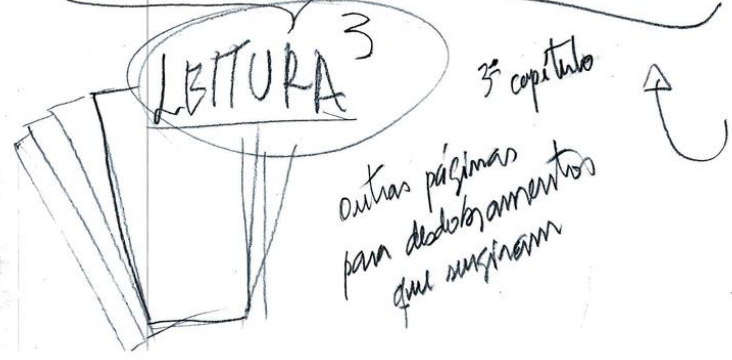 LEITURA³
3º capítulo
outras páginas
para desdobramentos
que surgiram